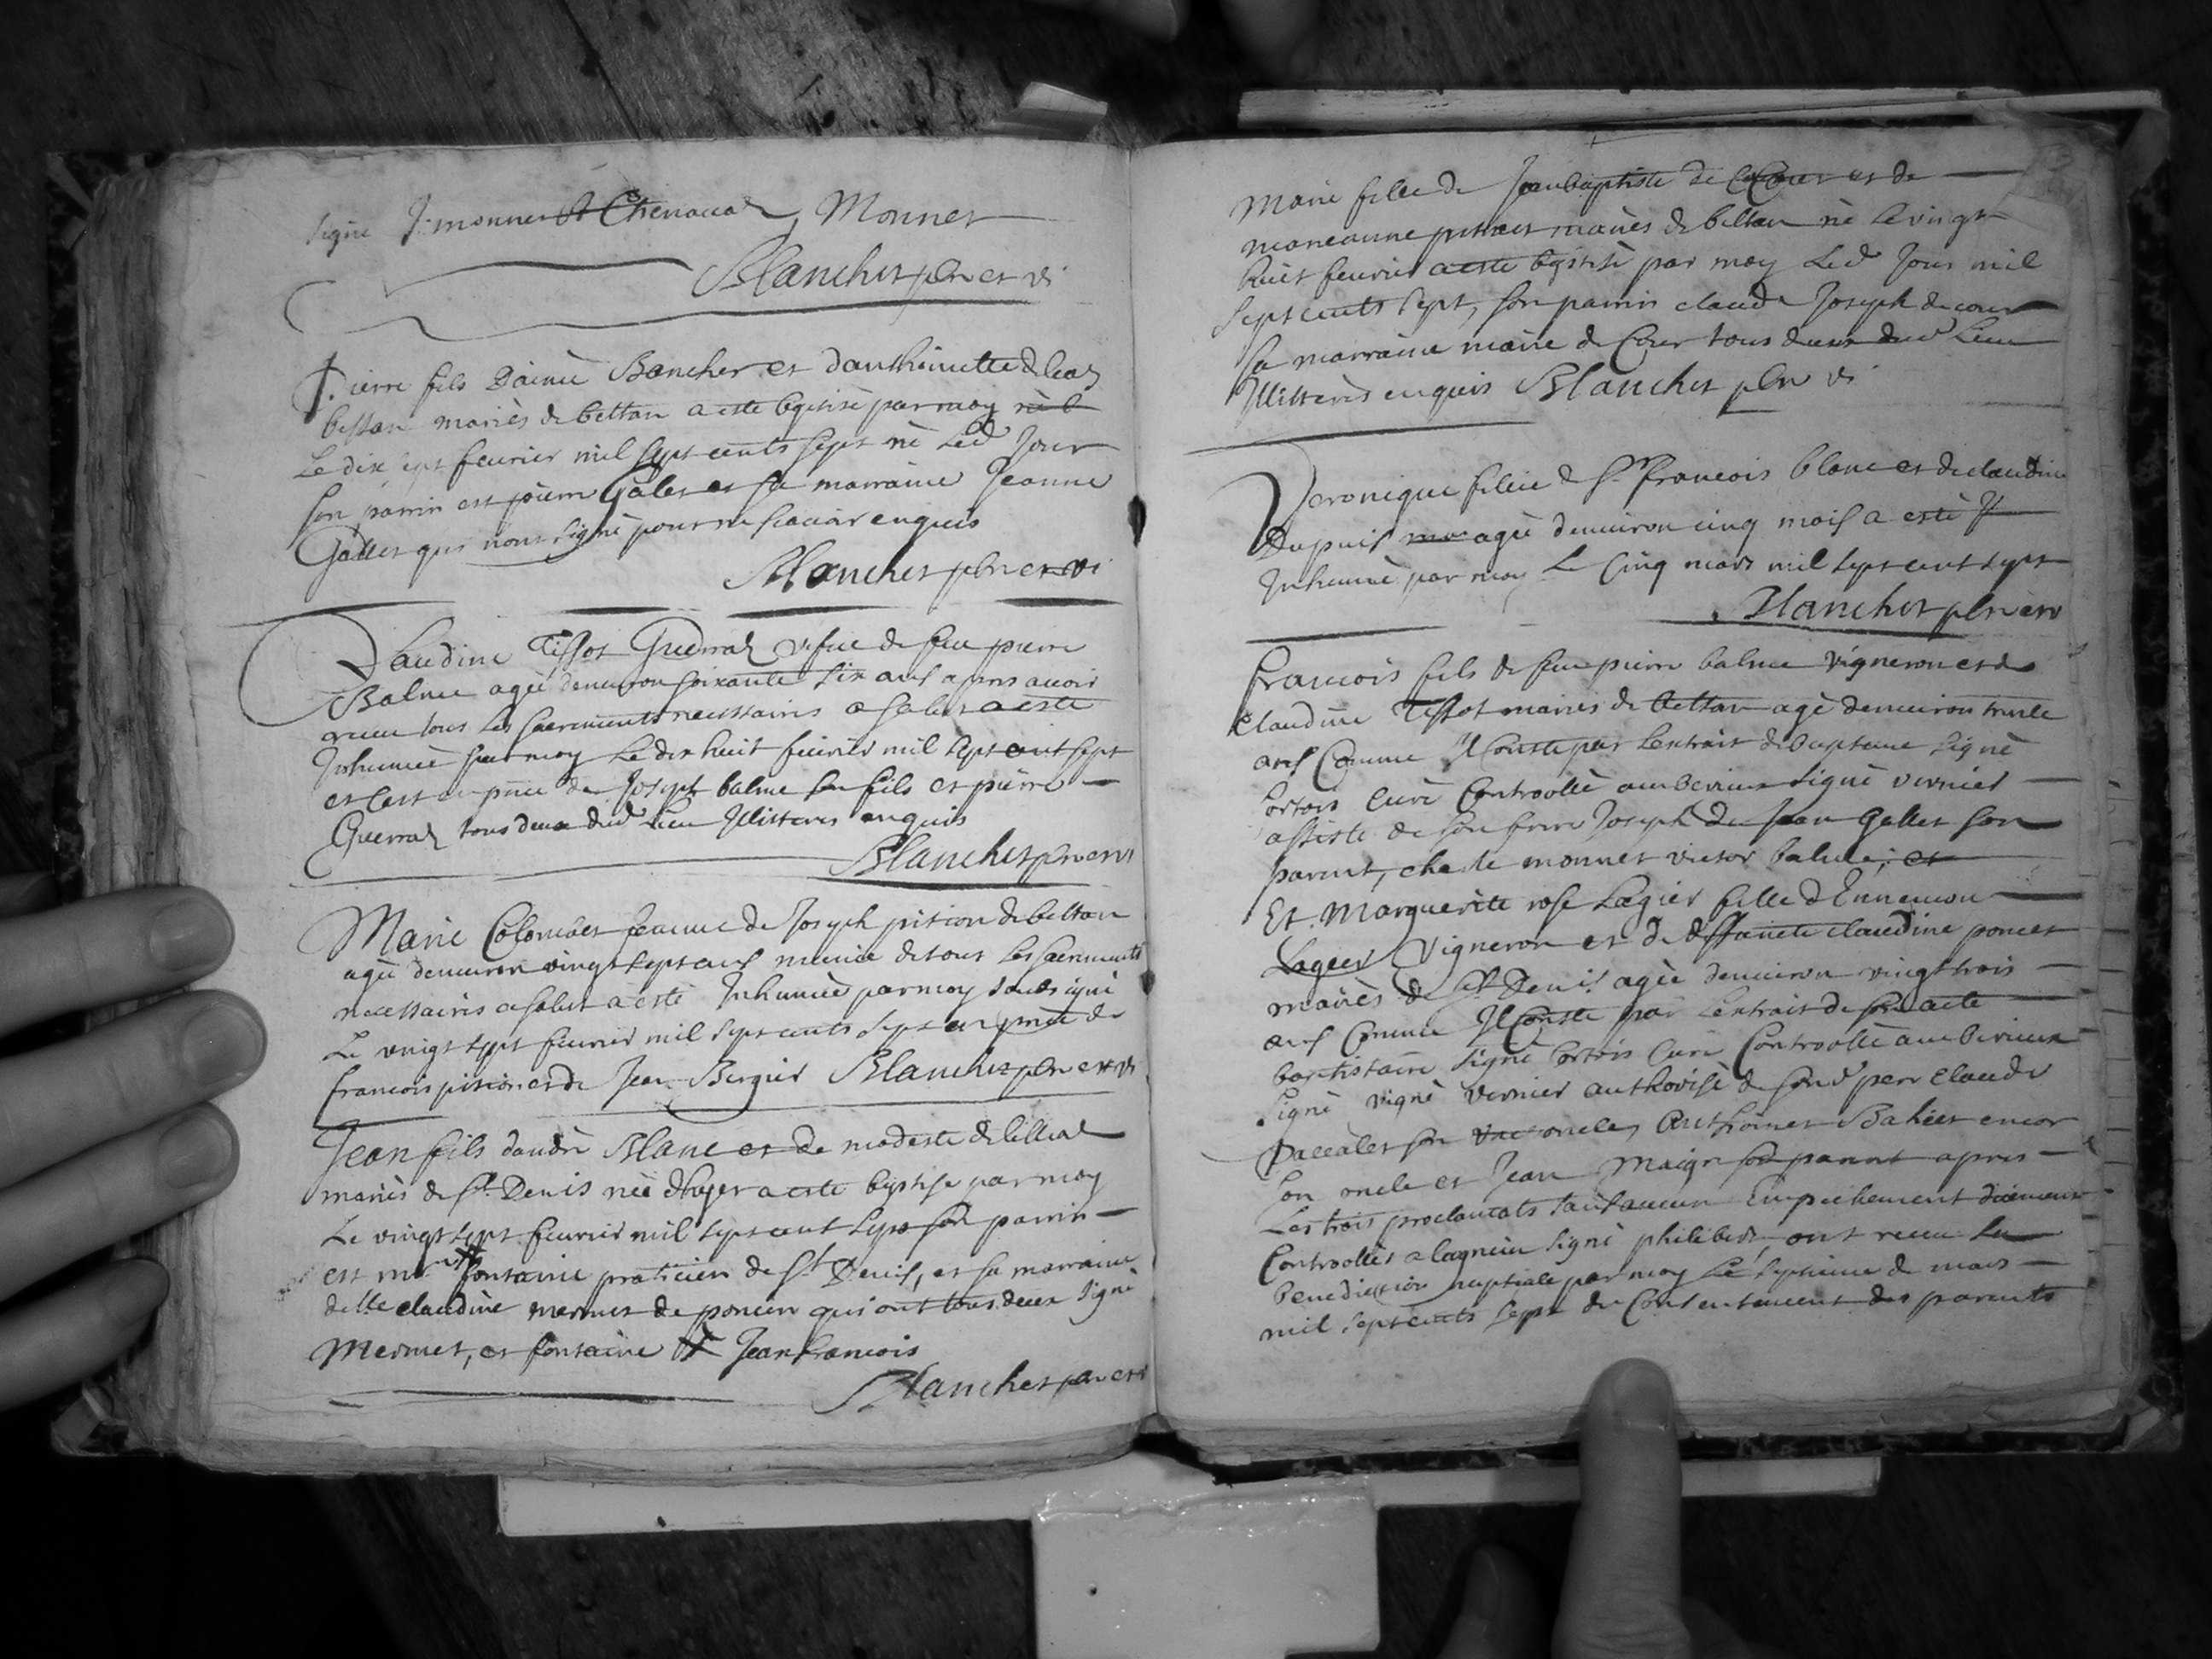 signé J. monnet & Chenavas Monnet
Blanchet pbr et vi
Pierre fils Daimé Boncher et danthoinette
bettan mariés de bettan a esté bptisé par moy
Le dix sept feurier mil sept cents sept né Led Jour
son parrin est pierre Gallet et sa marraine Jeanne
Gallet qui nont signé pour ne scavoir enquis
Blanchet pbr et vi
Claudine Tissot Guerraz vefue de feu pierre
Balme agée denuiron soixante six ans apres auoir
receu tous les sacrements necessaires a salut a esté
Inhumée par moy Le dix huit feurier mil sept cent sept
et cest en pnce de Joseph balme son fils et pierre
Guerraz tous deux dud Lieu Illitteres enquis
Blanchet pbr et vi
Marie Colombet femme de Joseph pition de bettan
agée denuiron vingt sept ans munie de tous les sacrements
necessaires a salut a esté Inhumée par moy soubsigné
Le vingt sept feurier mil sept cents sept en pnce de
francois pition et de Jean Bergier Blanchet pbr et vi
Jean fils dandré Blanc et de modeste
mariés de St. Denis né dhyer a esté bptisé par moy
Le vingt sept feurier mil sept cent sept son parrin
est mr fontaine praticien de St Denis, et sa marraine
delle claudine mermet de poncin qui ont tous deux signé
Mermet, et fontaine Jean francois
Blanchet pbr et vi
Marie fille de Jean baptiste de Cour et de
mariés de bettan né Le vingt
huit feurier a esté bptisé par moy Led Jour mil
sept cents sept, son parrin claude Joseph decour
sa marraine marie de Cour tous deux dud Lieu
Illitterés enquis Blanchet pbr vi
Veronique fillie de Sr francois blanc et de claudine
Dupuis agée denuiron cinq mois a esté
Inhumé par moy Le cinq mars mil sept cent sept
Blanchet pbr et vi
francois fils de feu pierre balme vigneron et de
claudine Tissot mariés de bettan agé denuiron trente
ans Comme Il Conste par Lextrait de baptesme signé
Cortois curé Controollé signé vernier
assisté de son frere Joseph de Jean Gallet son
parent, charle monnet victor balme, et
Et Marguerite rose Lagier fille dEnnemon
Lagier Vigneron et de deffuncte claudine poncet
mariés de St Denis agée denuiron vingt trois
ans Comme Il Conste par Lextrait de son acte
baptistaire signé Cortois Curé Controollé
signé vernier authorisé de sond pere claude
son oncle, Anthoinet encor
son oncle et Jean Maigre son parent apres
Les trois proclamats sans aucun Empechement
Controollés a lagnieu signé philibert, ont receu La
benediction nuptiale par moy Le septieme de mars
mil sept cents sept du Consentement des parents